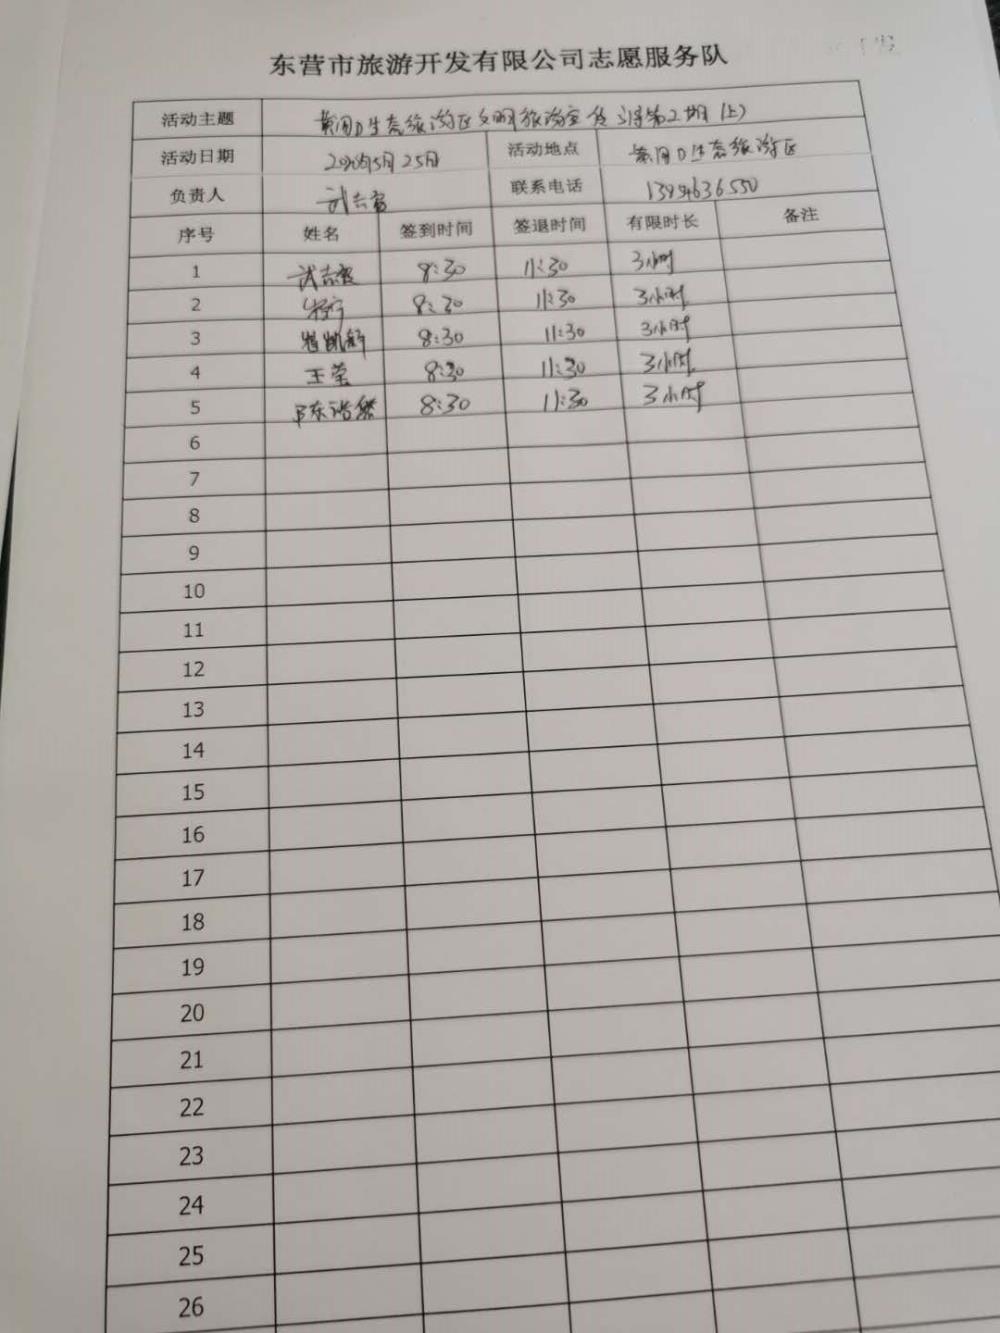 东营市旅游开发有限公司志愿服务队
活动主题 黄河口生态旅游区文明旅游宣传 第2期(上)
活动日期 2020年5月25日 活动地点 黄河口生态旅游区
负责人 武志 联系电话
序号 姓名 签到时间 签退时间 有限时长 备注
1 武志 8:30 11:30 3小时
2 8:30 11:30 3小时
3 8:30 11:30 3小时
4 王莹 8:30 11:30 3小时
5 陈浩然 8:30 11:30 3小时
6
7
8
9
10
11
12
13
14
15
16
17
18
19
20
21
22
23
24
25
26